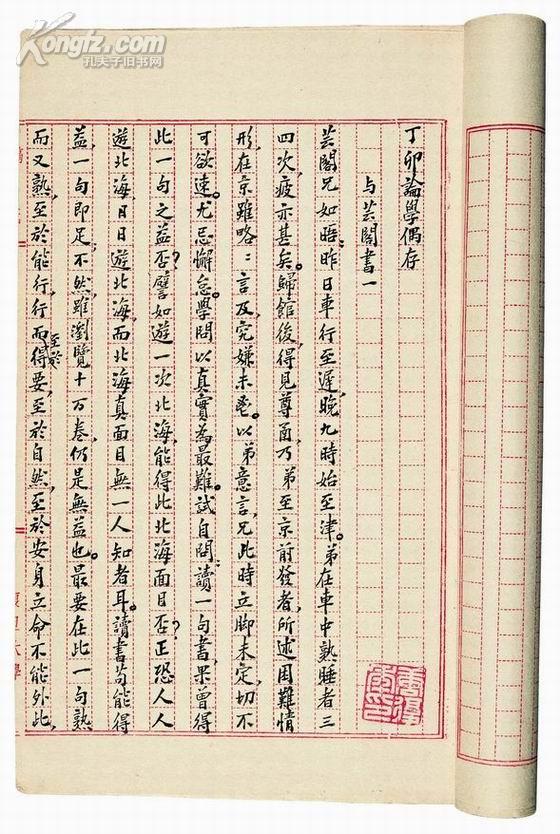 丁卯論學偶存
与芸閣書一
芸閣兄如晤：昨日車行至遲，晚九時始至津。弟在車中熟睡者三
四次，疲亦甚矣。歸館後，得見尊函，乃弟至京前發者，所述困難情
形，在京雖略二言及，究嫌未盡。以弟意言，兄此時立脚未定，切不
可欲速。尤忌懈怠。學問以真實為最難。試自問：讀一句書，果曾得
此一句之益否？譬如遊一次北海，能得此北海面目否？正恐人人
遊北海，日日遊北海，而北海真面目無一人知者耳。讀書苟能得
益，一句即足，不然，雖瀏覽十万卷，仍是無益也。最要在此一句熟
而又熟，至於能行，行而得要，至於自然，至於安身立命不能外此，
至於
Kongfz.com
孔夫子旧书网